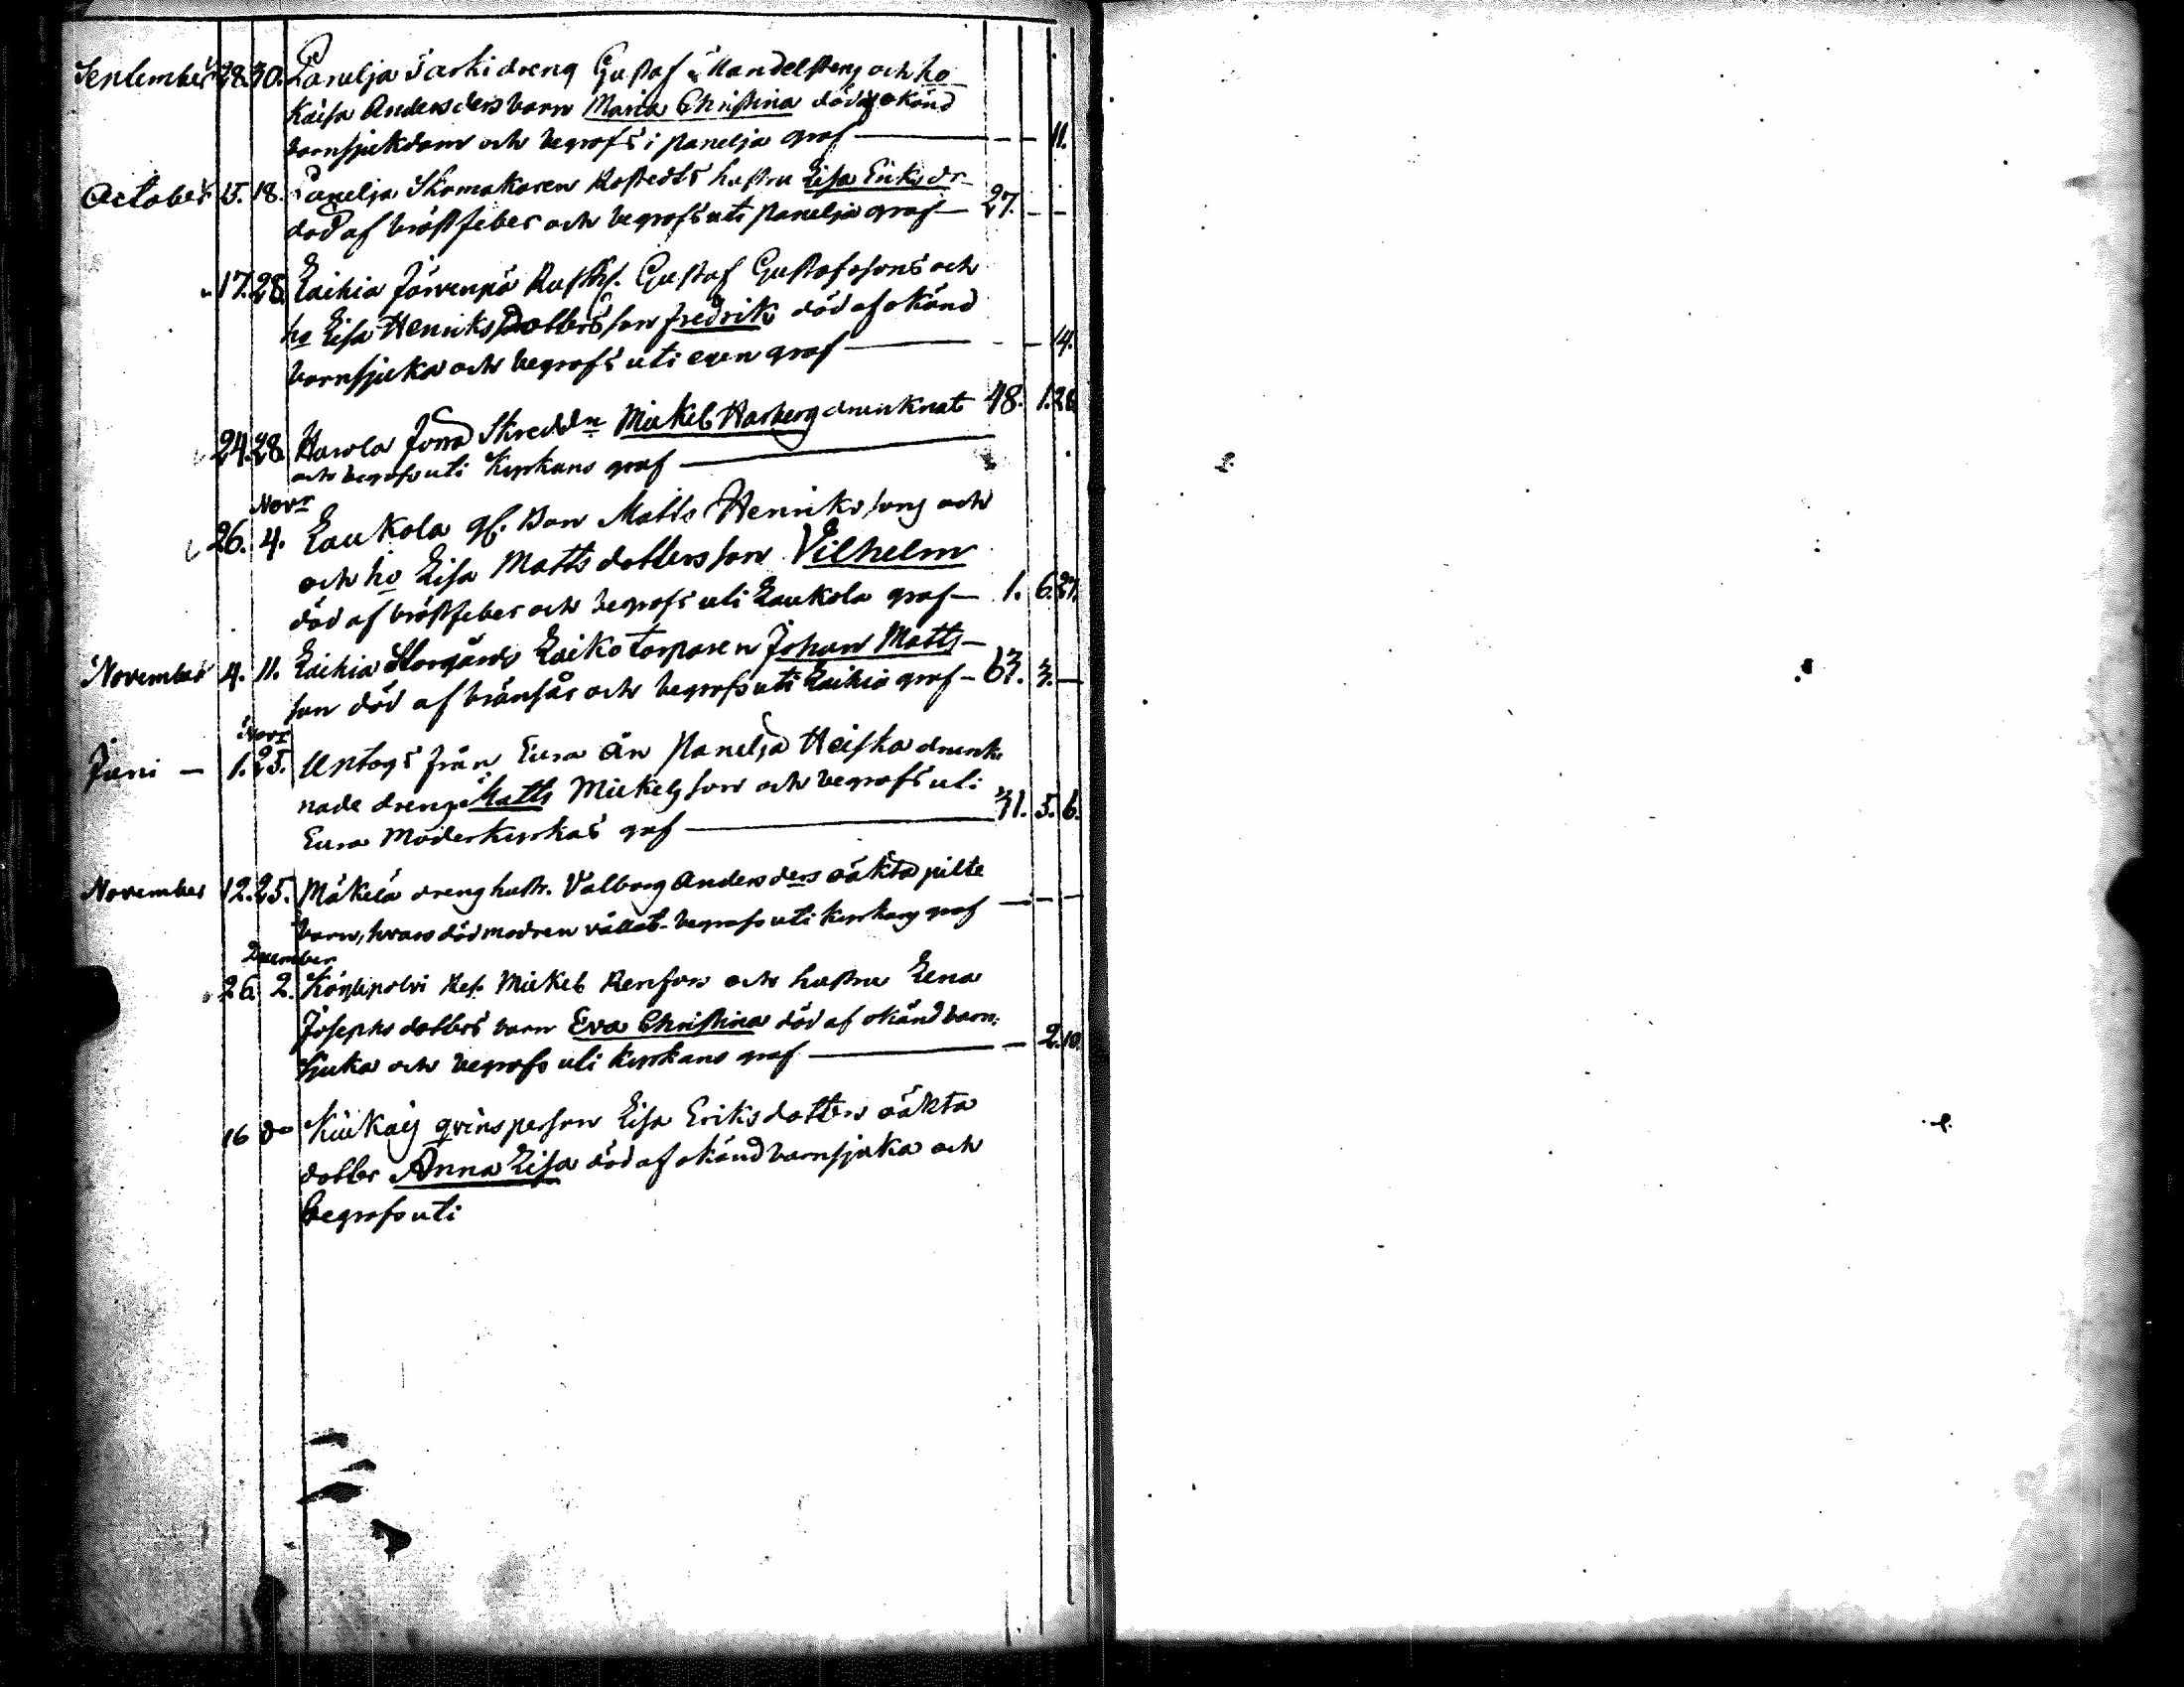 September 28. 30. Panelja Sarki dreng Gustaf Mandelsteng och ho
Kaisa Anders ders barn Maria Christina död af okänd
barnsjukdom och begrofs i panelja graf — — — 11.
October 15. 18. Panelja Skomakaren Rostedts hustru Lisa Eriks dr
död af bröstfeber och begrofs uti panelja graf — 27. — —
17. 28. Laihia Järvenpä Rusth. Gustaf Gustafsons och
ho Lisa Henriks dotters son Fredrik död af okänd
barnsjuka och begrofs uti egen graf — — — 4.
24. 28. Harola Jorra Skredd:n Mickel Harberg drunknat 48. 1. 28
och begrofs uti Kyrkans graf —
Novr
26. 4. Laukola Bon Matts Henriksons och
och ho Lisa Matts dotters son Vilhelm
död af bröstfeber och begrofs uti Laukola graf — 1. 6. 27.
November 4. 11. Laihia Storgårds Laiko torparen Johan Matts-
son död af och begrofs uti Laihia graf — 63. 3. —
Novr
Juni — 1. 25. Uptogs från Eura ån panelja Heiska drunk-
nade drengen Matts Mickelsson och begrofs uti
Eura Moderkyrkas graf — 31. 5. 6.
November 12. 25. Mäkelä dreng hustr. Valborg Anders ders oäkta pilte
barn, hvars död modren vållat – begrofs uti Kyrkans graf — — —
December
26. 2. Mickel Renfors och hustru Lena
Josephs dotters barn Eva Christina död af okänd barn-
sjuka och begrofs uti kyrkans graf — — 2. 10.
16 do Kiukais qvinsperson Lisa Eriks dotters oäkta
dotter Anna Lisa död af okänd barnsjuka och
begrofs uti